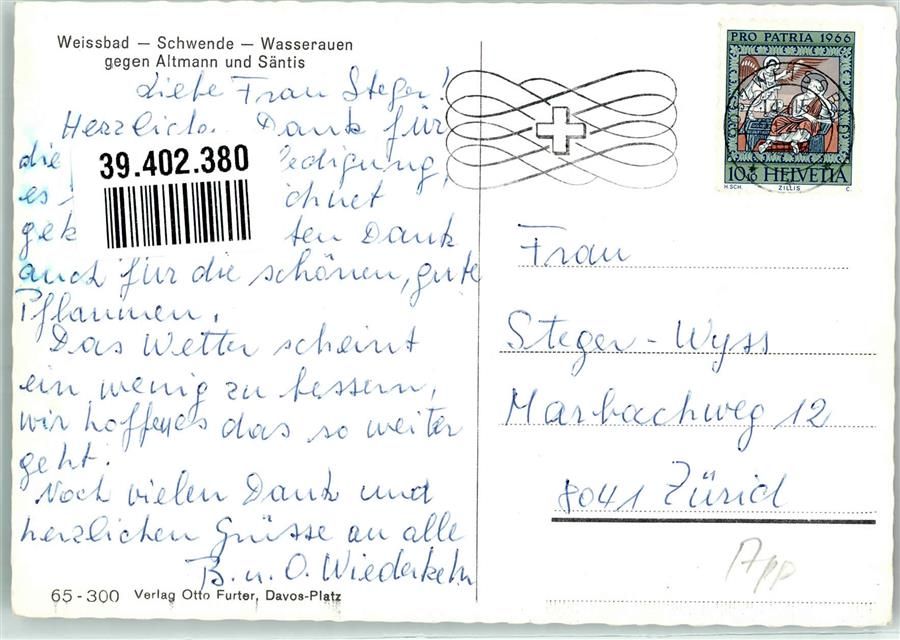 Weissbad – Schwende – Wasserauen
gegen Altmann und Säntis
Liebe Frau Steger!
Herzlich. Dank für
die edigung,
es chnet
gek ten Dank
auch für die schönen, gute
Pflaumen.
Das Wetter scheint
ein wenig zu bessern,
wir hoffen es das so weiter
geht.
Noch vielen Dank und
herzlichen Grüsse an alle
B. u. O. Wiederkehr
65-300 Verlag Otto Furter, Davos-Platz
39.402.380
PRO PATRIA 1966
10+10 HELVETIA
H. SCH. ZILLIS C.
Frau
Steger-Wyss
Marbachweg 12
8041 Zürich
App